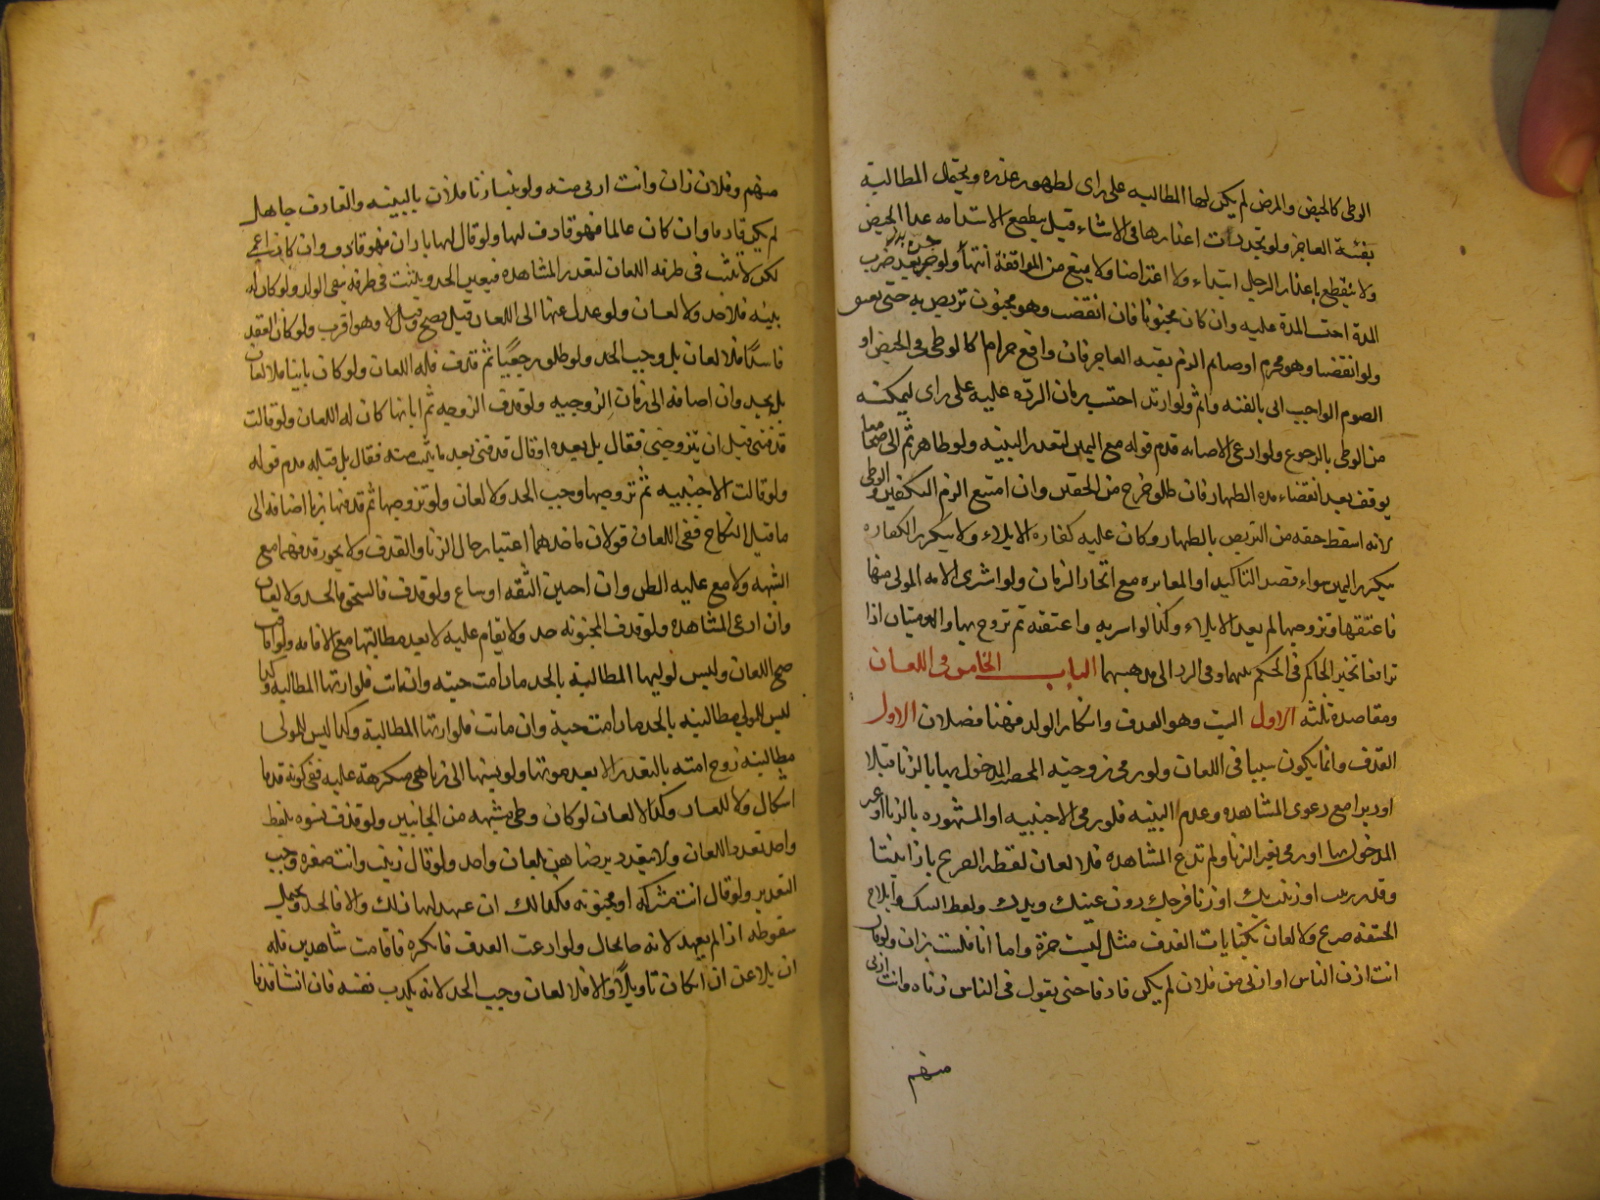 الوطى كالحيض والمرض لم يكن لها المطالبه على راى لظهور عذره ويحتمل المطالبة
بفئة العاجز ولو تجددت اعذارها فى الاثناء قيل ينقطع الاستدامه عدا الحيض
ولا ينقطع باعذار الرجل ابتداء ولا اعتراضا ولا يمنع من المرافعة انتهاء ولو جن بعد ضرب
المدة احتسب المدة عليه وان كان مجنونا فان انقضت وهو مجنون تربص به حتى يفيق
ولو انقضت وهو محرم او صايم الزم بفيه العاجز فان واقع حراما كالوطى فى الحيض او
الصوم الواجب اتى بالفئه واثم ولو ارتد احتسب زمان الردّه عليه على راى ليمكنه
من الوطى بالرجوع ولو ادعى الاصابه قدم قوله مع اليمين لتعذر البينه ولو ظاهر ثم الى صحا معا
يوقف بعد انقضاء مده الظهار فان طلق خرج من الحقين وان امتنع الزم التكفير و الوطى
لانه اسقط حقه من التربص بالظهار وكان عليه كفاره الايلاء ولا يتكرر الكفاره
بتكرر اليمين سواء قصد التاكيد او المغايره مع اتحاد الزمان ولو اشترى الامه المولى منها
فاعتقها وتزوجها لم يعد الايلاء وكذا لو اشتريه واعتقته ثم تزوج بها والذميان اذا
ترافعا تخير الحاكم فى الحكم بينهما وفى الرد الى مذهبهما الباب الخامس فى اللعان
ومقاصده ثلثه الاول السبب وهو القذف وانكار الولد فهنا فصلان الاول
القذف وانما يكون سببا فى اللعان ولو رمى زوجته المحصنه المدخول بها بالزنا قبلا
او دبرا مع دعوى المشاهده وعدم البينه فلو رمى الاجنبيه او المشهوره بالزنا او غير
المدخول بها او رمى بغير الزنا ولم تدع المشاهده فلا لعان لفظه الصريح يا زانيه
او زنا فرجك دون عينك ويدك ولفظ النيك وايلاج
الحشفه صريح ولا لعان بكنايات القذف مثل لست حرة واما انا فلست بزان ولو قال
انت ازنى الناس او ازنى من فلان لم يكن قاذفا حتى يقول فى الناس زناه وانت ازنى
منهم
منهم وفلان زان وانت ازنى منه ولو ثبت زنا فلان بالبينه والقاذف جاهل
لم يكن قاذفا وان كان عالما فهو قاذف لها ولو قال لها يا زان فهو قاذف وان كان اعمى
لكن لا يثبت فى طرفه اللعان لتعذر المشاهده فيتعين الحد ويثبت فى طرفه بنفى الولد ولو كان له
بينه فلا حد ولا لعان ولو عدل عنها الى اللعان قيل يصح وقيل لا وهو اقرب ولو كان العقد
فاسدًا فلا لعان بل وجب الحد ولو طلق رجعيًا ثم قذف فله اللعان ولو كان باينا فلا لعان
بل يحد وان اضافه الى زمان الزوجيه ولو قذف الزوجه ثم ابانها كان له اللعان ولو قالت
قذفنى قبل ان يتزوجنى فقال بل بعده او قالت قذفنى بعد ما بنت منه فقال بل قبله قدم قوله
ولو قالت الاجنبيه ثم تزوجها وجب الحد ولا لعان ولو تزوجها ثم قذفها بزنا اضافه الى
ما قبل النكاح ففى اللعان قولان ماخذهما اعتبار حال الزنا والقذف ولا يجوز قذفها مع
الشبهه ولا مع غلبه الظن وان اخبره الثقه او شاع ولو قذف فالسحق الحد ولا لعان
وان ادعى المشاهده ولو قذف المجنونه حد ولا يقام عليه الا بعد مطالبتها مع الافاقه ولو افاقت
صح اللعان وليس لوليها المطالبة بالحد ما دامت حيته وان ماتت فلوارثها المطالبه وكذا
ليس للمولى مطالبته بالحد ما دامت حية وان ماتت فلوارثها المطالبة وكذا ليس للمولى
مطالبته زوج امته بالتعذير الا بعد موتها ولو نسبها الى زنا هى مستكرهة عليه ففى كونه قذفا
اشكال ولا لعان وكذا لا لعان لو كان وطى شبهه من الجانبين ولو قذف نسوه بلفظ
واحد تعدد اللعان ولا يتحد برضاهن بلعان واحد ولو قال زنيت وانت صغره وجب
التعذير ولو قال انت مشركه او مجنونه فكذلك ان عهد لها ذلك والا فالحد ويحتمل
سقوطه اذا لم يعهد لانه جا بحال ولو ادعت القذف فانكره فاقامت شاهدين فله
ان يلاعن ان كان تاويلًا والا فلا لعان وجب الحد لانه يكذب نفسه فان انشا قذفا